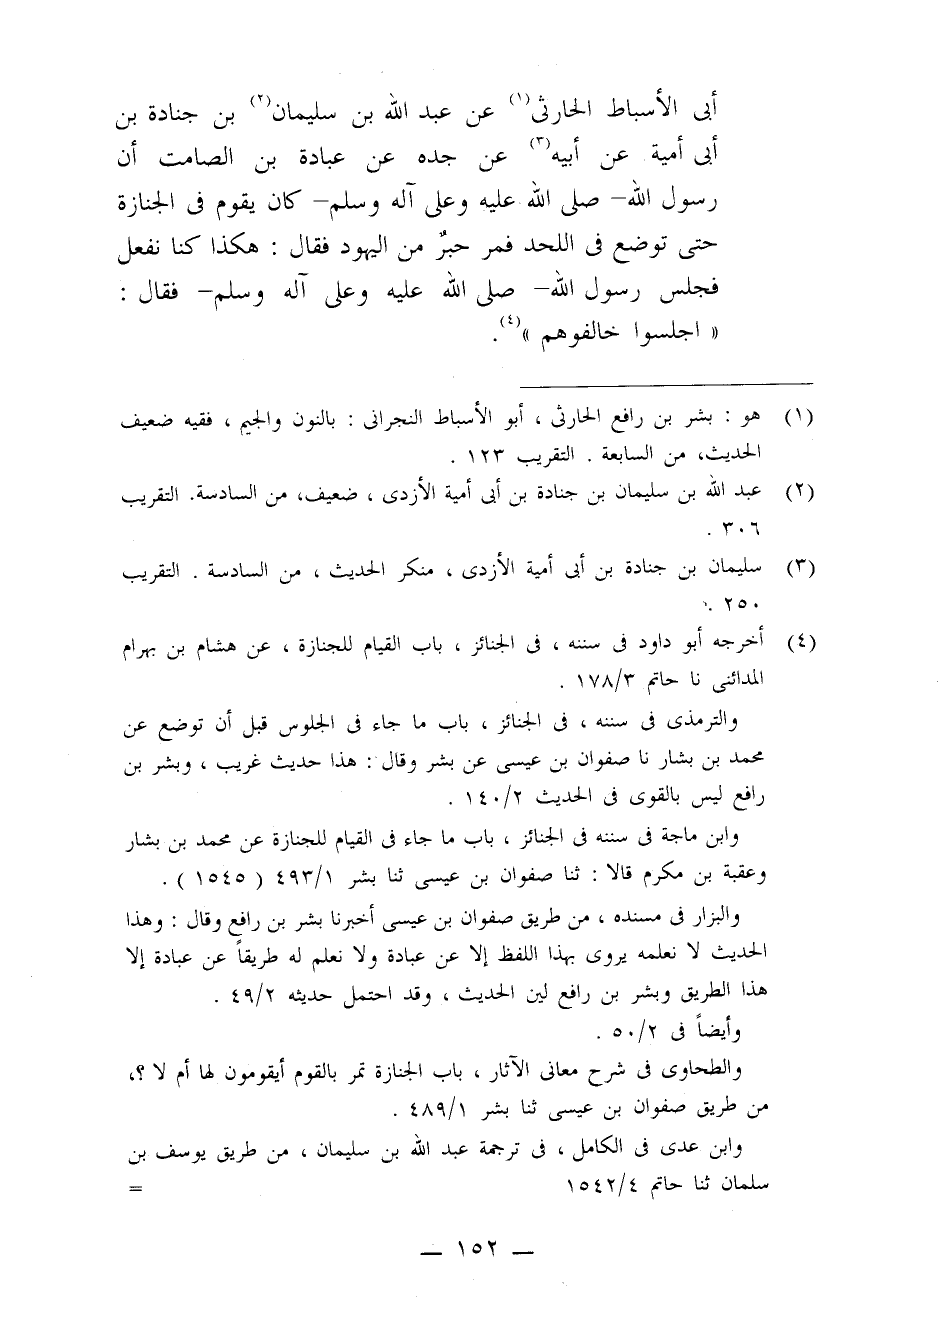 أبى الأسباط الحارثى(١) عن عبد الله بن سليمان(٢) بن جنادة بن
أبى أمية عن أبيه(٣) عن جده عن عبادة بن الصامت أن
رسول الله– صلى الله عليه وعلى آله وسلم– كان يقوم فى الجنازة
حتى توضع فى اللحد فمر حبرٌ من اليهود فقال : هكذا كنا نفعل
فجلس رسول الله– صلى الله عليه وعلى آله وسلم– فقال :
« اجلسوا خالفوهم »(٤).
(١) هو : بشر بن رافع الحارثى ، أبو الأسباط النجرانى : بالنون والجيم ، فقيه ضعيف
الحديث، من السابعة . التقريب ١٢٣ .
(٢) عبد الله بن سليمان بن جنادة بن أبى أمية الأزدى ، ضعيف، من السادسة. التقريب
٣٠٦ .
(٣) سليمان بن جنادة بن أبى أمية الأزدى ، منكر الحديث ، من السادسة . التقريب
٢٥٠ .
(٤) أخرجه أبو داود فى سننه ، فى الجنائز ، باب القيام للجنازة ، عن هشام بن بهرام
المدائنى نا حاتم ١٧٨/٣ .
والترمذى فى سننه ، فى الجنائز ، باب ما جاء فى الجلوس قبل أن توضع عن
محمد بن بشار نا صفوان بن عيسى عن بشر وقال : هذا حديث غريب ، وبشر بن
رافع ليس بالقوى فى الحديث ١٤٠/٢ .
وابن ماجة فى سننه فى الجنائز ، باب ما جاء فى القيام للجنازة عن محمد بن بشار
وعقبة بن مكرم قالا : ثنا صفوان بن عيسى ثنا بشر ٤٩٣/١ ( ١٥٤٥ ) .
والبزار فى مسنده ، من طريق صفوان بن عيسى أخبرنا بشر بن رافع وقال : وهذا
الحديث لا نعلمه يروى بهذا اللفظ إلا عن عبادة ولا نعلم له طريقاً عن عبادة إلا
هذا الطريق وبشر بن رافع لين الحديث ، وقد احتمل حديثه ٤٩/٢ .
وأيضاً فى ٥٠/٢ .
والطحاوى فى شرح معانى الآثار ، باب الجنازة تمر بالقوم أيقومون لها أم لا ؟،
من طريق صفوان بن عيسى ثنا بشر ٤٨٩/١ .
وابن عدى فى الكامل ، فى ترجمة عبد الله بن سليمان ، من طريق يوسف بن
سلمان ثنا حاتم ١٥٤٢/٤ =
— ١٥٢ —